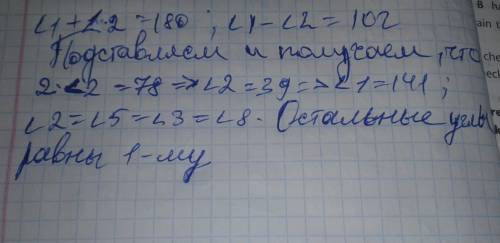 ∠1+∠2=180 ; ∠1-∠2=102
Подставляем и получаем, что
2·∠2=78=>∠2=39=>∠1=141;
∠2=∠5=∠3=∠8. Остальные углы
равны 1-му